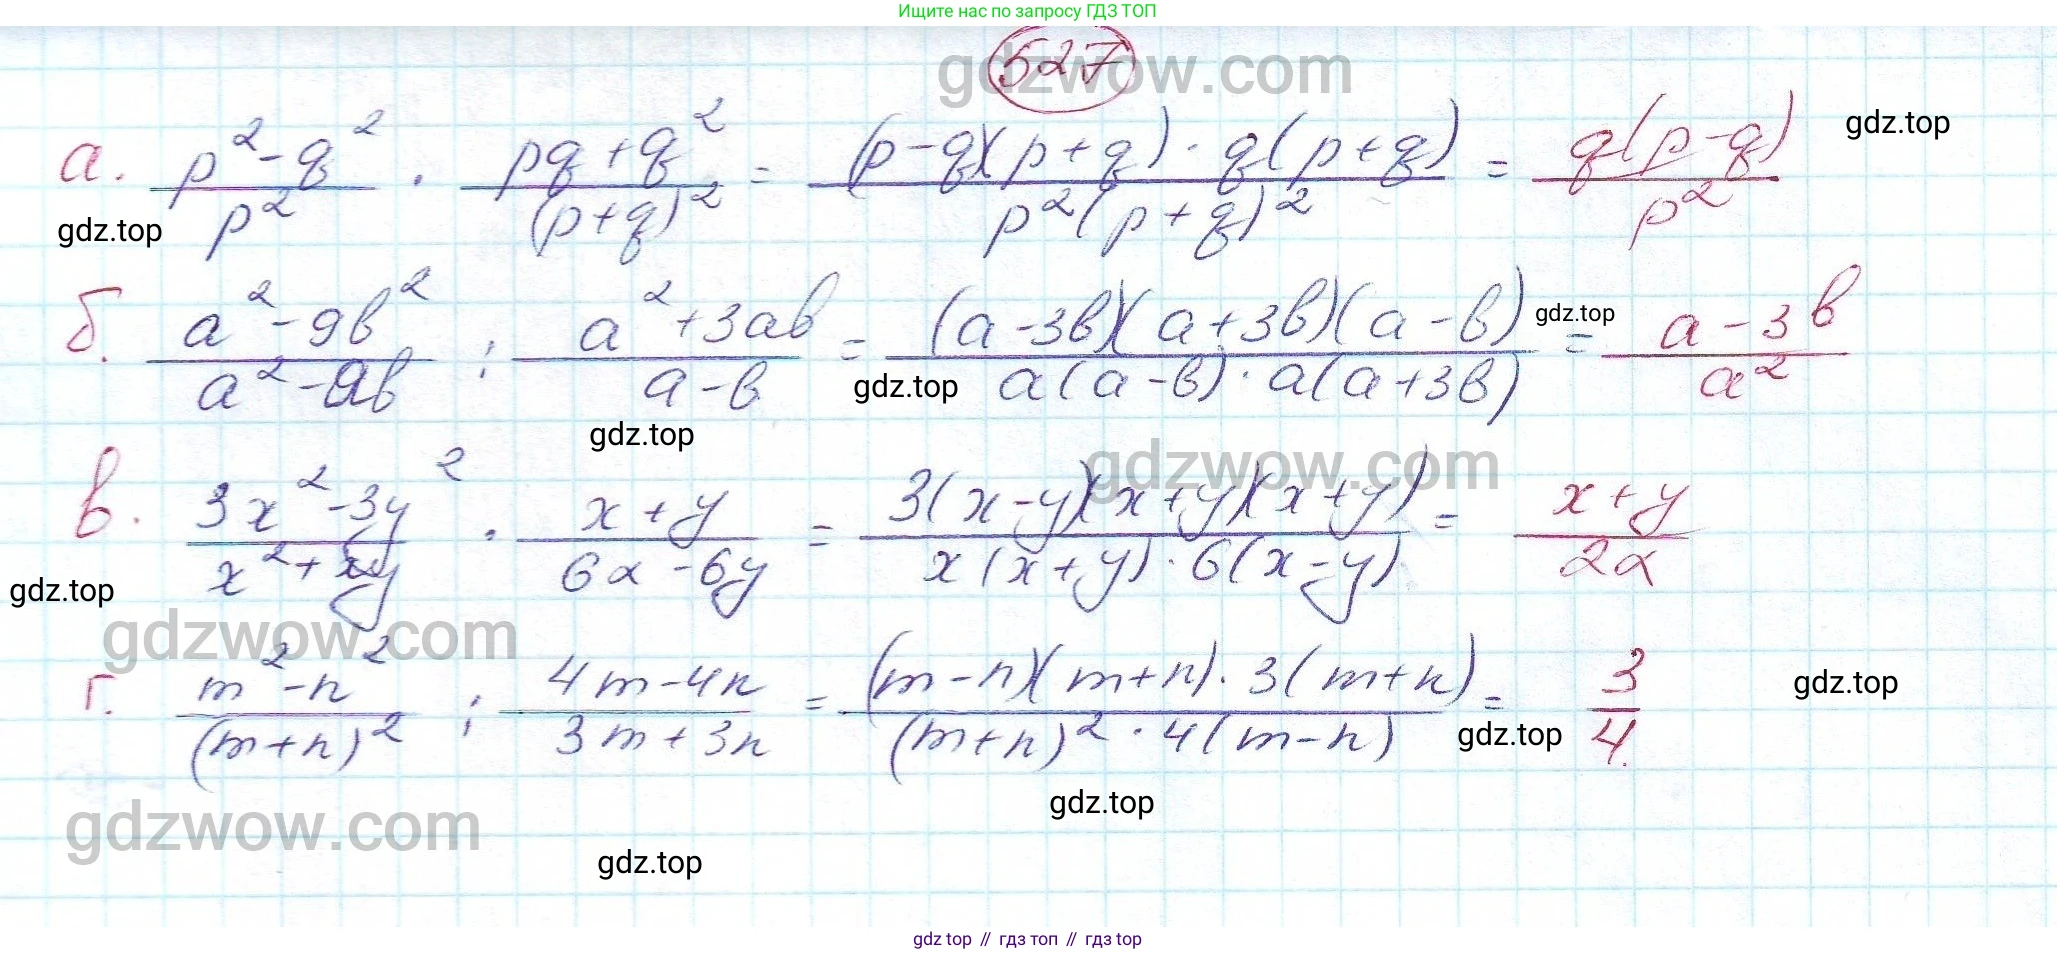 Ищите нас по запросу ГДЗ ТОП
527
gdzwow.com
а. (p² - q²)/p² · (pq + q²)/(p+q)² = ((p-q)(p+q) · q(p+q))/(p²(p+q)²) = q(p-q)/p²
gdz.top
gdz.top
б. (a² - 9b²)/(a² - ab) : (a² + 3ab)/(a - b) = ((a-3b)(a+3b)(a-b))/(a(a-b) · a(a+3b)) = (a-3b)/a²
gdz.top
gdz.top
gdz.top
gdzwow.com
в. (3x² - 3y²)/(x² + xy) · (x+y)/(6x - 6y) = (3(x-y)(x+y)(x+y))/(x(x+y) · 6(x-y)) = (x+y)/2x
gdz.top
gdzwow.com
г. (m² - n²)/(m+n)² : (4m - 4n)/(3m + 3n) = ((m-n)(m+n) · 3(m+n))/((m+n)² · 4(m-n)) = 3/4.
gdz.top
gdz.top
gdz.top
gdzwow.com
gdz.top
gdz top // гдз топ // gdz top